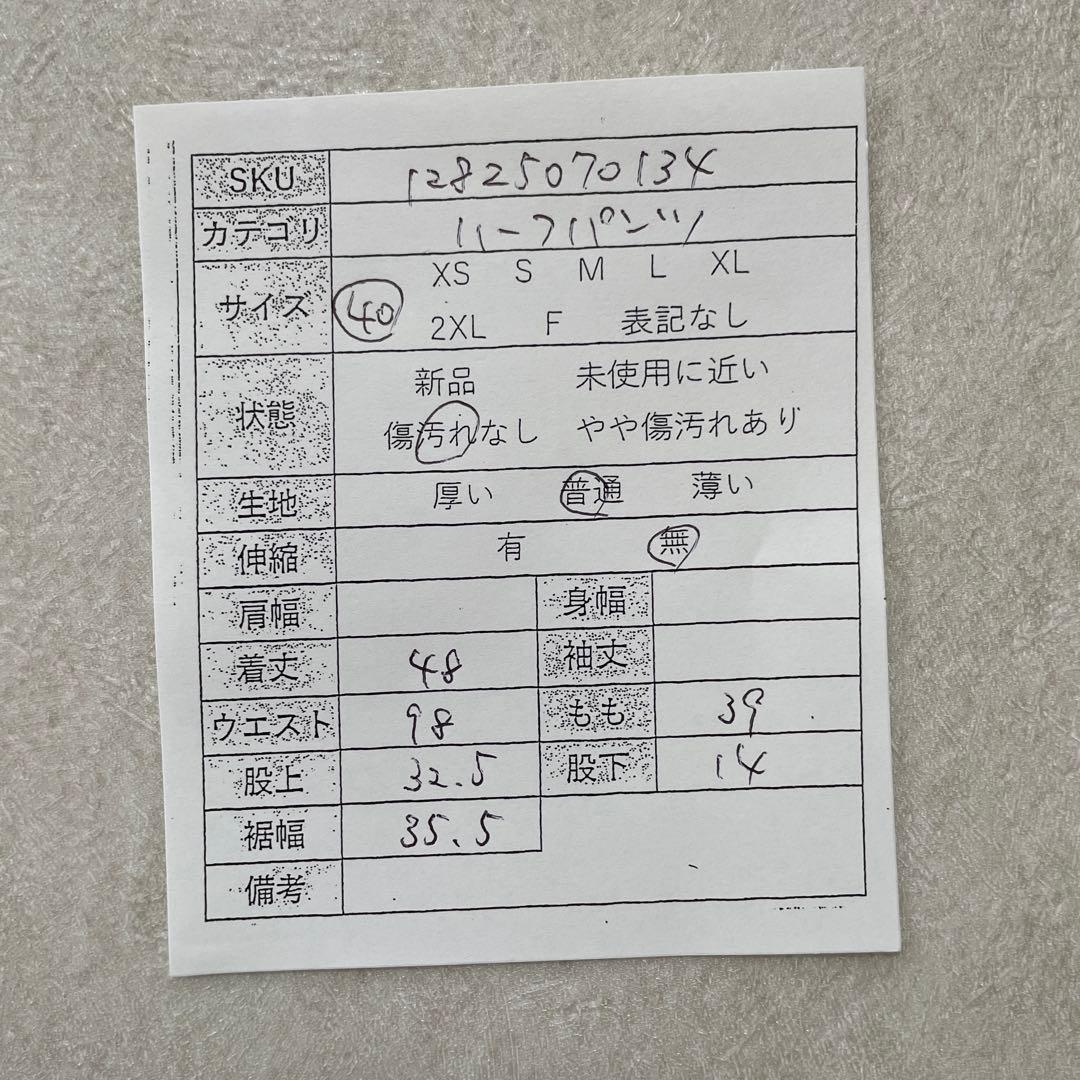 SKU 12825070134
カテゴリ ハーフパンツ
サイズ XS S M L XL
40 2XL F 表記なし
状態 新品 未使用に近い
傷汚れなし やや傷汚れあり
生地 厚い 普通 薄い
伸縮 有 無
肩幅 身幅
着丈 48 袖丈
ウエスト 98 もも 39
股上 32.5 股下 14
裾幅 35.5
備考